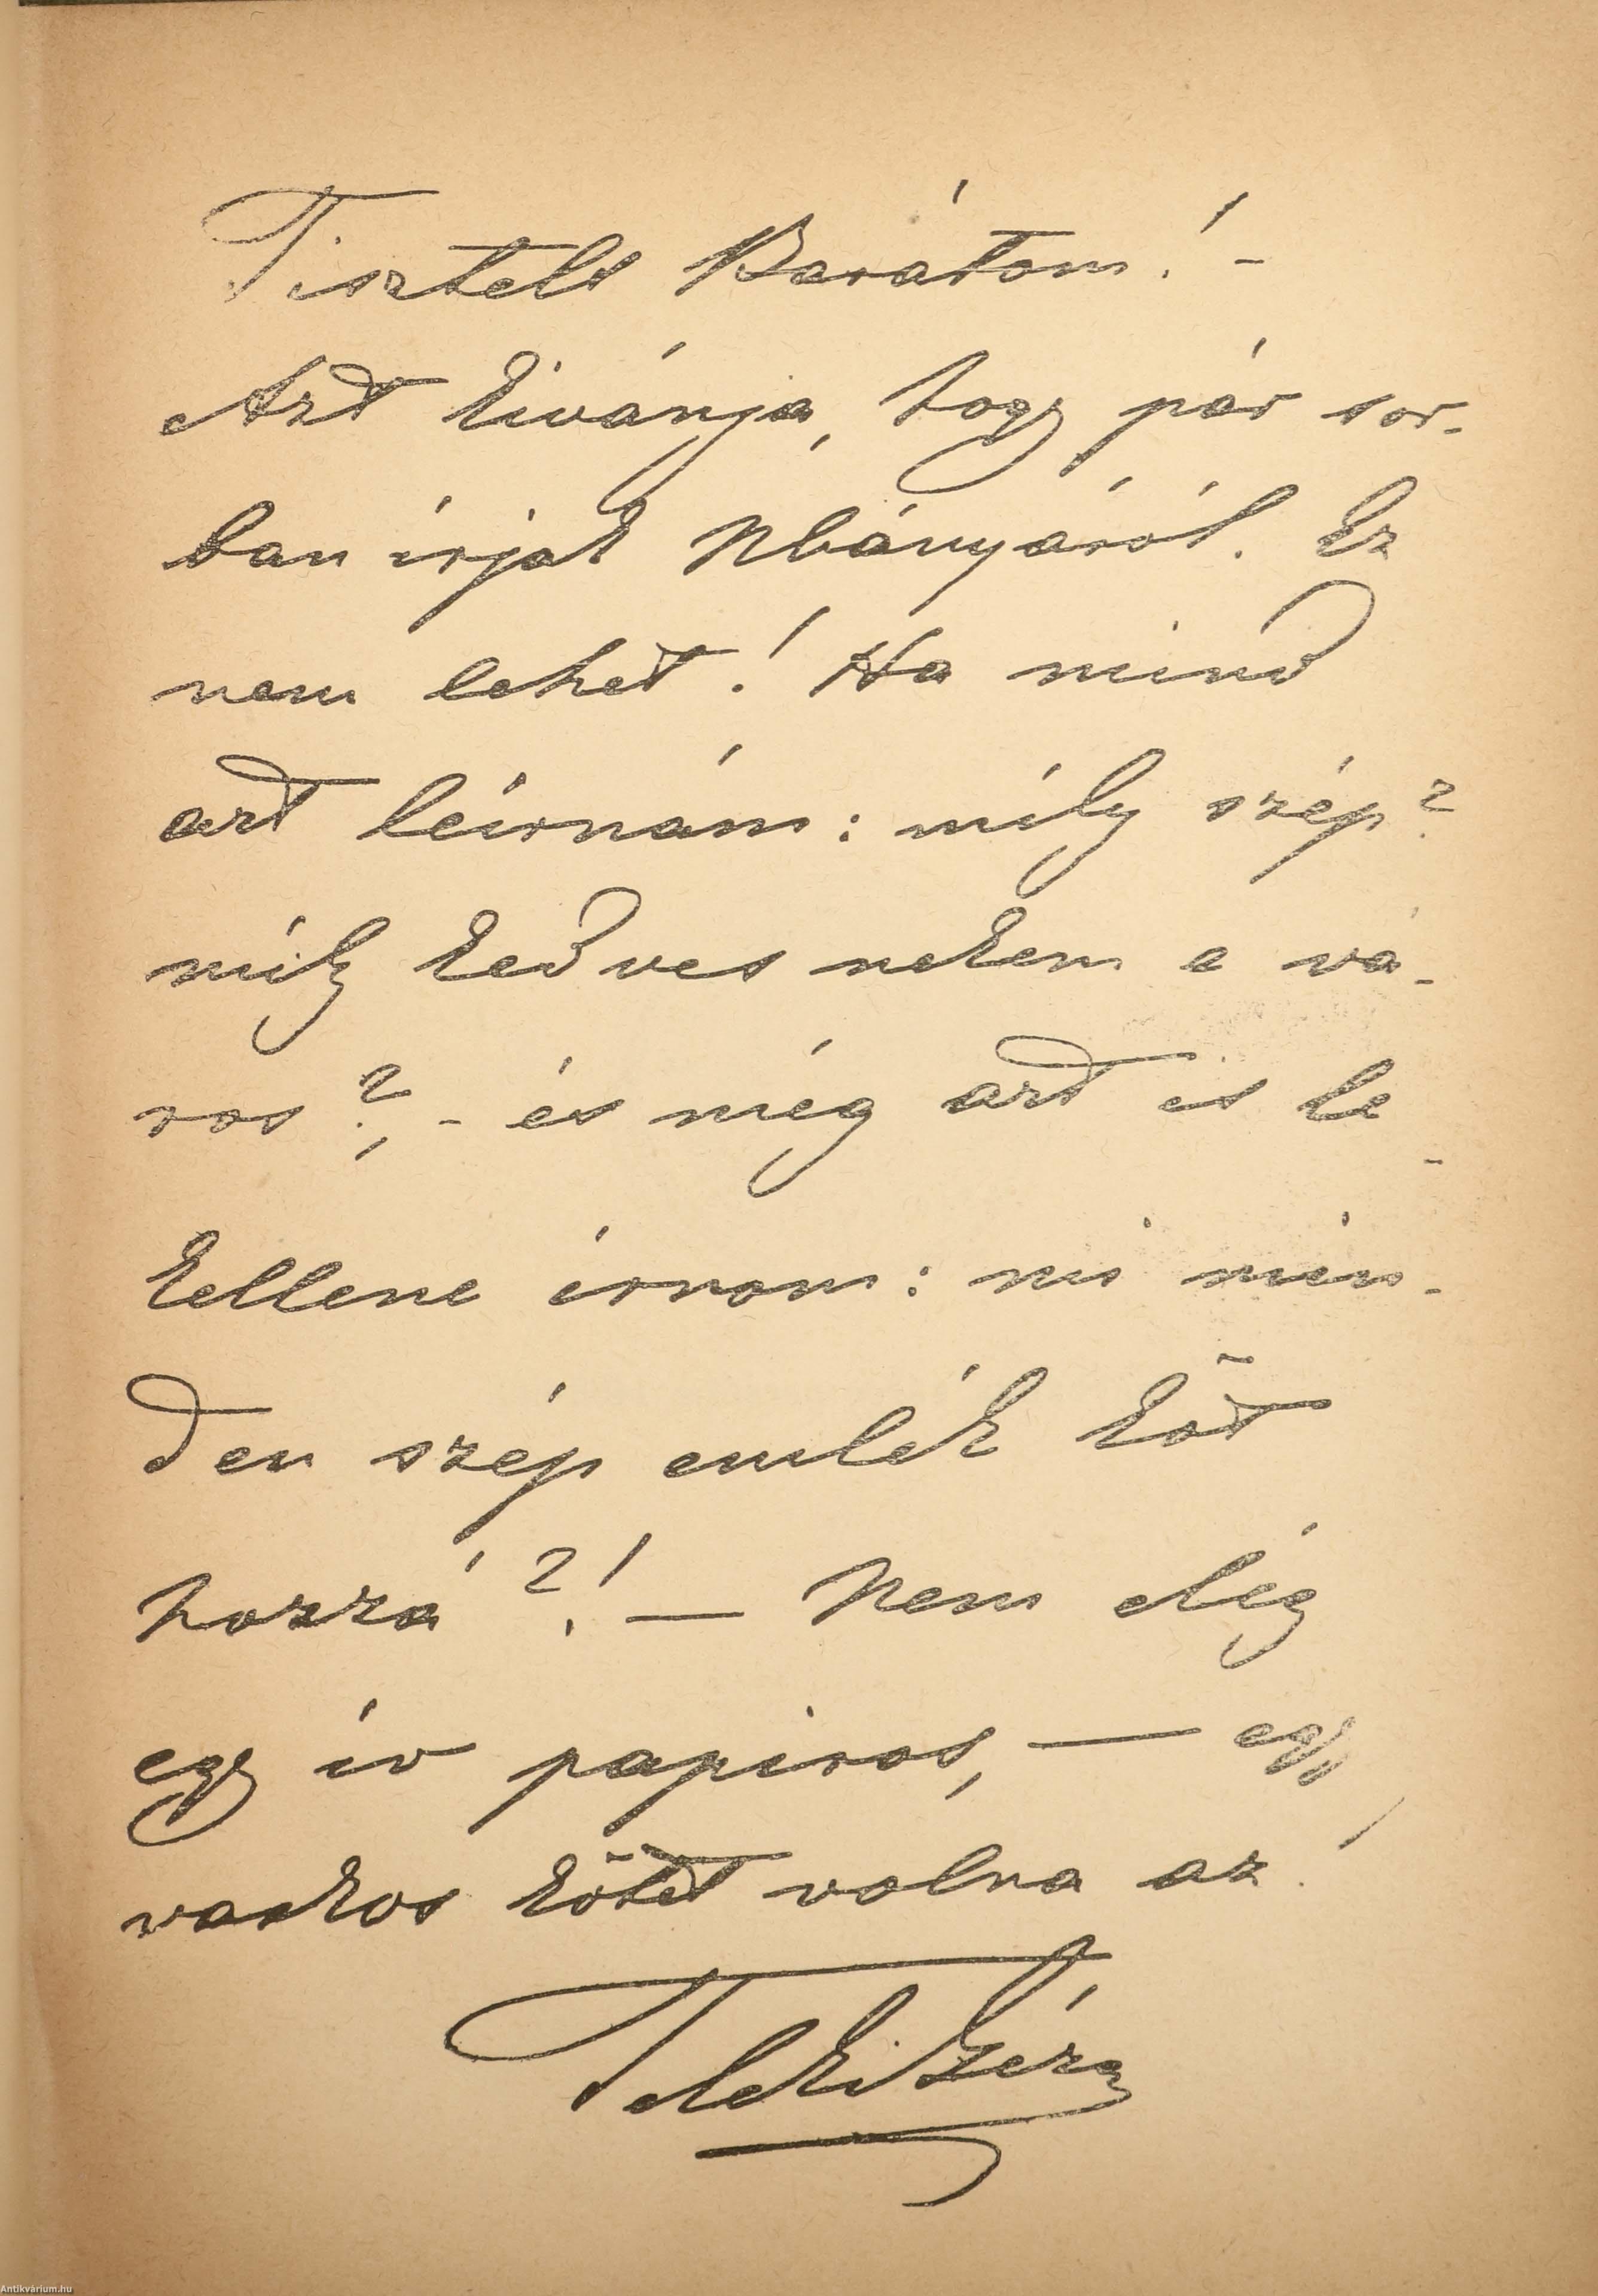 Tisztelt Barátom! -
Azt kivánja, hogy pár sor-
ban irjak Nbányáról. Ez
nem lehet! Ha mind
azt leirnám: mily szép?
mily kedves nekem e vá-
ros?, - és még azt is le
kellene írnom: mi min-
den szép emlék köt
hozzá?! — Nem elég
egy ív papiros, — egy
vaskos kötet volna az!
Teleki Géza
Antikvárium.hu